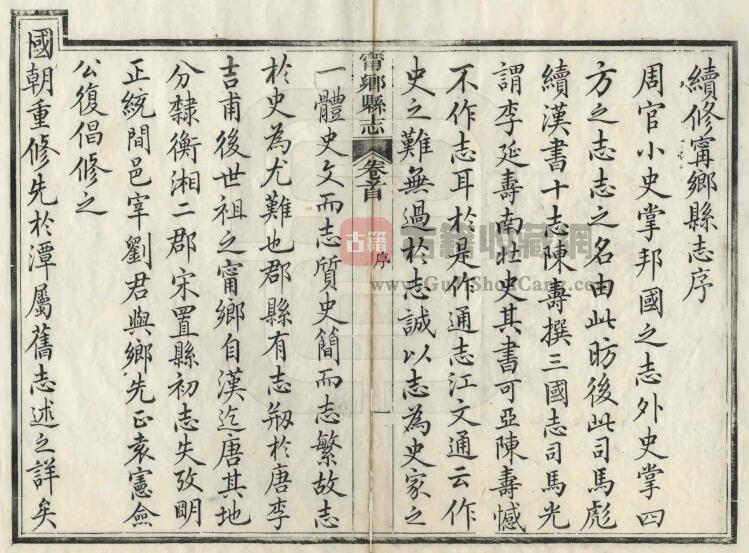 續修寗鄉縣志序
周官小史掌邦國之志外史掌四
方之志志之名由此昉後此司馬彪
續漢書十志陳壽撰三國志司馬光
謂李延壽南北史其書可亞陳壽憾
不作志耳於是作通志江文通云作
史之難無過於志誠以志為史家之
寗鄉縣志 卷首 序
一體史文而志質史簡而志繁故志
於史為尤難也郡縣有志剏於唐李
吉甫後世祖之寗鄉自漢迄唐其地
分隸衡湘二郡宋置縣初志失攷明
正統間邑宰劉君與鄉先正袁憲僉
公復倡修之
國朝重修先於潭屬舊志述之詳矣
古籍
古籍收藏網
www.GujiShouCang.com